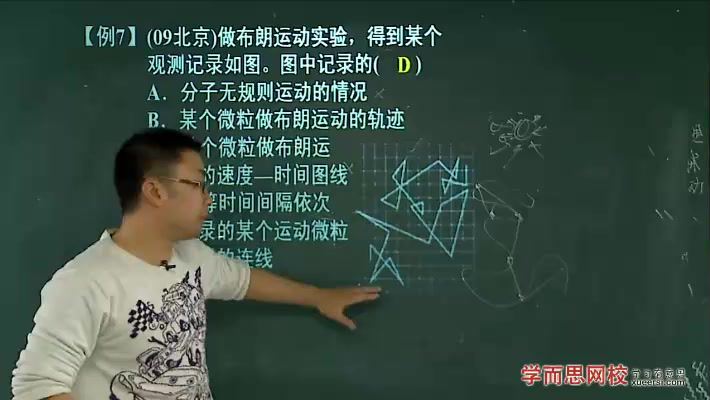 【例7】(09北京)做布朗运动实验，得到某个
观测记录如图。图中记录的( D )
A．分子无规则运动的情况
B．某个微粒做布朗运动的轨迹
个微粒做布朗运
的速度—时间图线
等时间间隔依次
录的某个运动微粒
的连线
动
学而思网校
xueersi.com